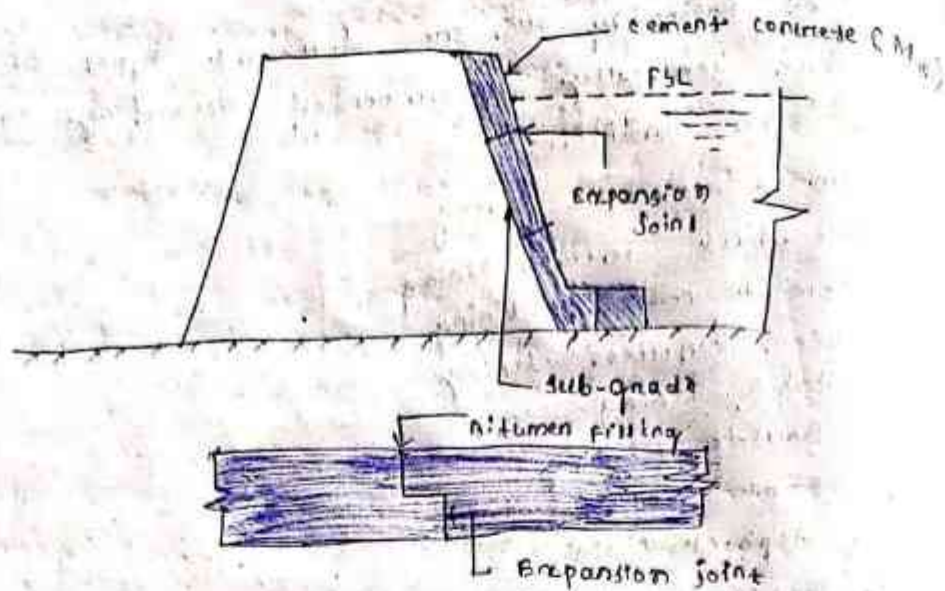 cement concrete (M
FSL
Expansion
joint
sub-grade
Bitumen filling
Expansion joint